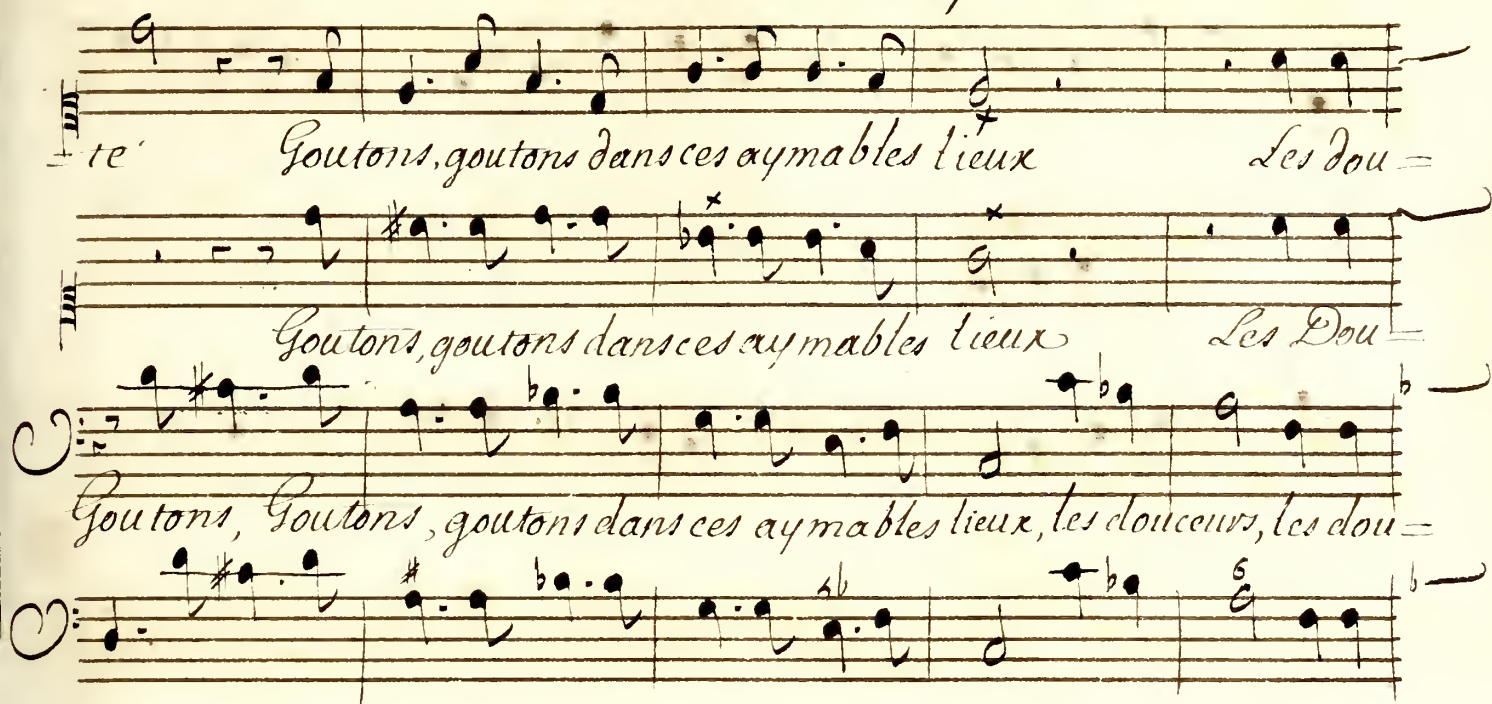 = te' Goutons, goutons dans ces aymables lieux Les dou =
Goutons, goutons dans ces aymables lieux Les Dou =
Goutons, Goutons, goutons dans ces aymables lieux, les douceurs, les dou =
6